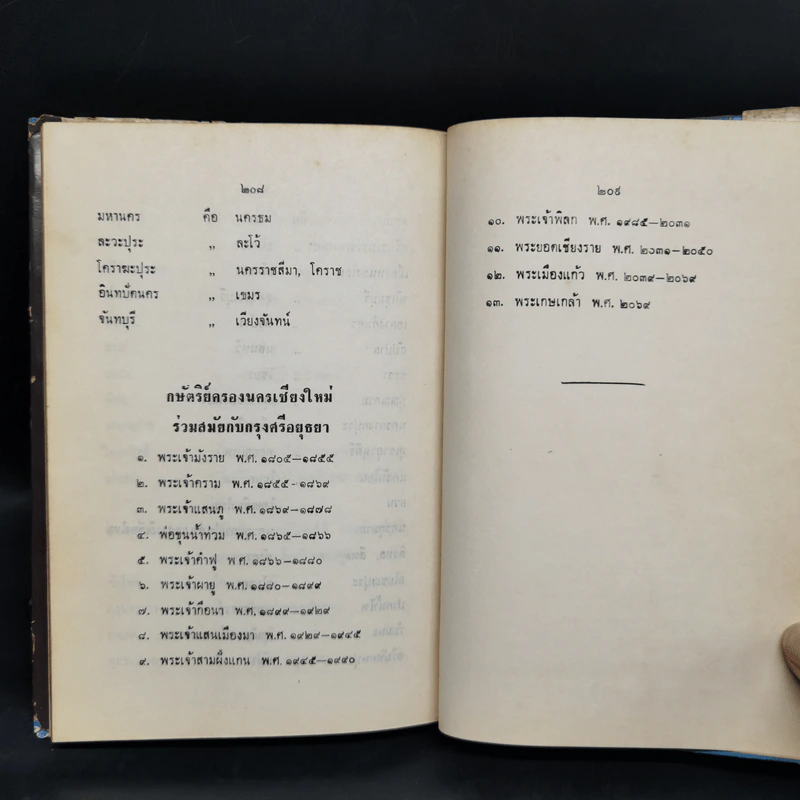 ๒๐๘
มหานคร คือ นครธม
ละวะปุระ ,, ละโว้
โคราฆะปุระ ,, นครราชสีมา, โคราช
อินทปัตนคร ,, เขมร
จันทบุรี ,, เวียงจันทน์
กษัตริย์ครองนครเชียงใหม่
ร่วมสมัยกับกรุงศรีอยุธยา
๑. พระเจ้ามังราย พ.ศ. ๑๘๐๕—๑๘๕๕
๒. พระเจ้าคราม พ.ศ. ๑๘๕๕-๑๘๖๙
๓. พระเจ้าแสนภู พ.ศ. ๑๘๖๙—๑๘๗๘
๔. พ่อขุนน้ำท่วม พ.ศ. ๑๘๖๕—๑๘๖๖
๕. พระเจ้าคำฟู พ.ศ. ๑๘๖๖—๑๘๘๐
๖. พระเจ้าผายู พ.ศ. ๑๘๘๐—๑๘๙๙
๗. พระเจ้ากือนา พ.ศ. ๑๘๙๙—๑๙๒๙
๘. พระเจ้าแสนเมืองมา พ.ศ. ๑๙๒๙—๑๙๔๕
๙. พระเจ้าสามฝั่งแกน พ.ศ. ๑๙๔๕—๑๙๙๐
๒๐๙
๑๐. พระเจ้าพิลก พ.ศ. ๑๙๘๕—๒๐๓๑
๑๑. พระยอดเชียงราย พ.ศ. ๒๐๓๑—๒๐๕๐
๑๒. พระเมืองแก้ว พ.ศ. ๒๐๓๙—๒๐๖๙
๑๓. พระเกษเกล้า พ.ศ. ๒๐๖๙